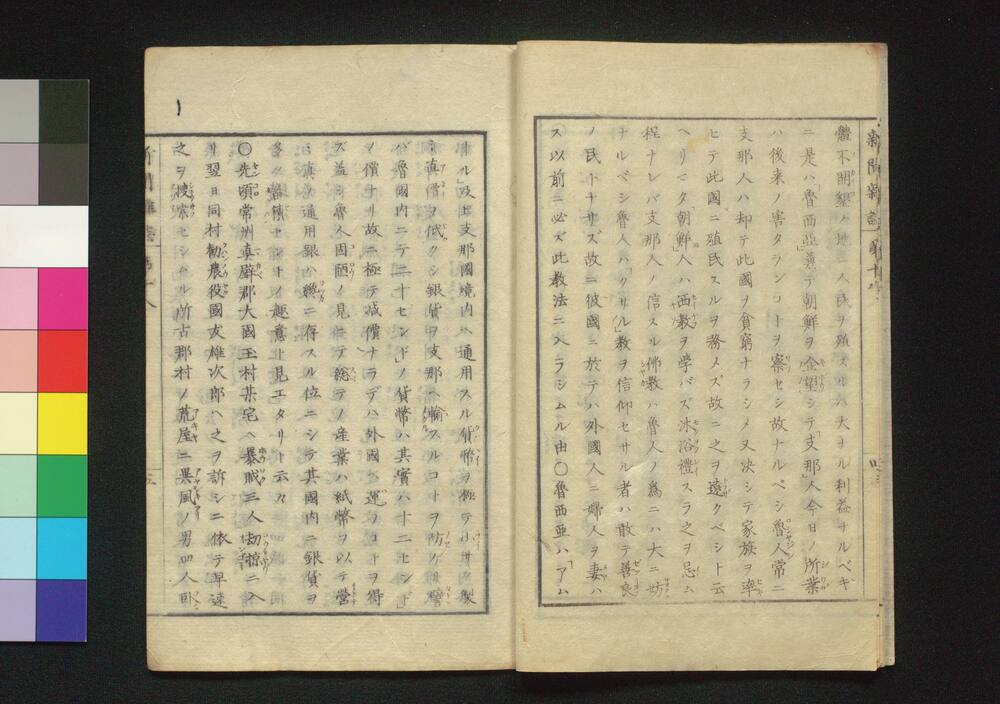 新聞雜誌
第十八
體不開墾ノ地ニ人民ヲ殖スルハ大ナル利益ナルベキ
ニ是ハ「魯西亞」兼テ朝鮮ヲ企望シテ「支那」人今日ノ所業
ハ後来ノ害タランコトヲ察セシ故ナルベシ魯人常ニ
支那人ハ却テ此國ヲ貧窮ナラシメ又决シテ家族ヲ率
ヒテ此國ニ殖民スルヲ務メズ故ニ之ヲ遠クベシト云
ヘリ「朝鮮」人ハ西教ヲ学バズ沐浴禮スラ之ヲ忌ム
程ナレバ支那人ノ信スル佛教ハ魯人ノ爲ニハ大ニ妨
ナルベシ魯人ハ「クリサル」教ヲ信仰セサル者ハ敢テ善良
ノ民トナサズ故ニ彼國ニ於テハ外國人ニ婦人ヲ妻ハ
ス以前ニ必ズ此教法ニ入ラシムル由〇魯西亜ハ「アム
ール」及ヒ支那國境内ヘ通用スル貨幣ヲ極テ
眞價ヲ低クシ銀貨ヲ支那ヘ輸スルコトヲ防ケリ譬
バ魯國内ニテ二十「センド」ノ貨幣ハ其實ハ十二「センド」
ノ價ナリ故ニ極テ减價ナラデハ外國ヘ運ブコトヲ得
ズ蓋シ魯人固陋ノ見ニテ総テノ産業ハ紙幣ヲ以テ營
ミ眞ノ通用銀ハ纔ニ存スル位ニシテ其國内ニ銀貨ヲ
多ク蓄積セントノ趣意ト見エタリト云々
〇先頃常州真壁郡大國玉村某宅ヘ暴賊三人劫掠ニ入
リ翌日同村勧農役國友雄次郎ヘ之ヲ訴シニ依テ早速
之ヲ捜索セシムル所古郡村ノ荒屋ニ異風ノ男四人臥
五